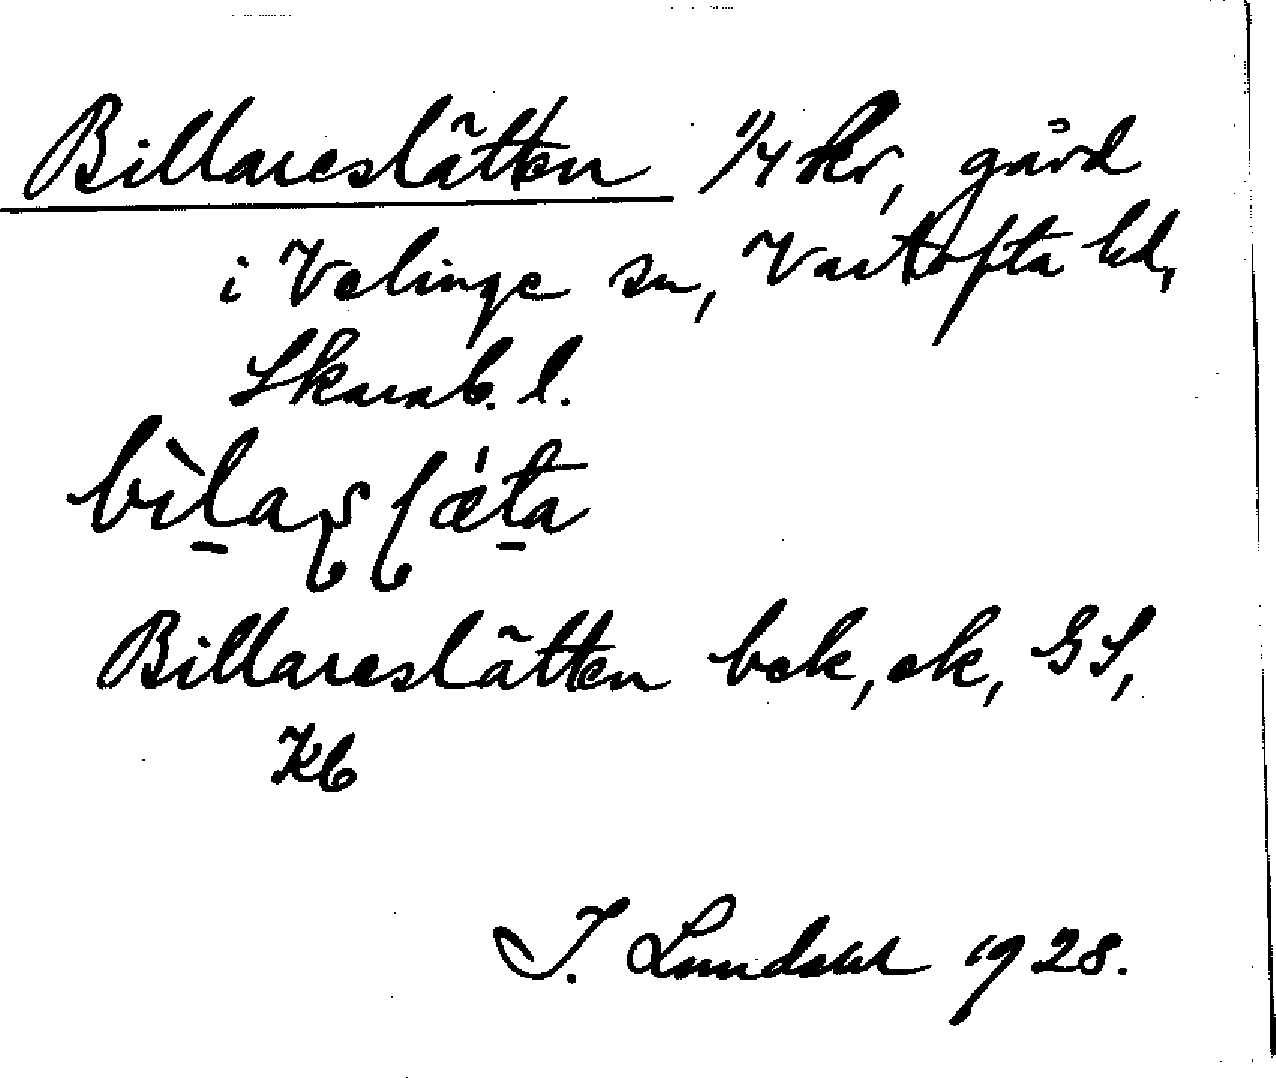 Billareslätten 1/4 kr, gård
i Velinge sn, Vartofta hd,
Skarab. l.
Billareslätten bek, ek, GS,
Kb
I. Lundahl 1928.